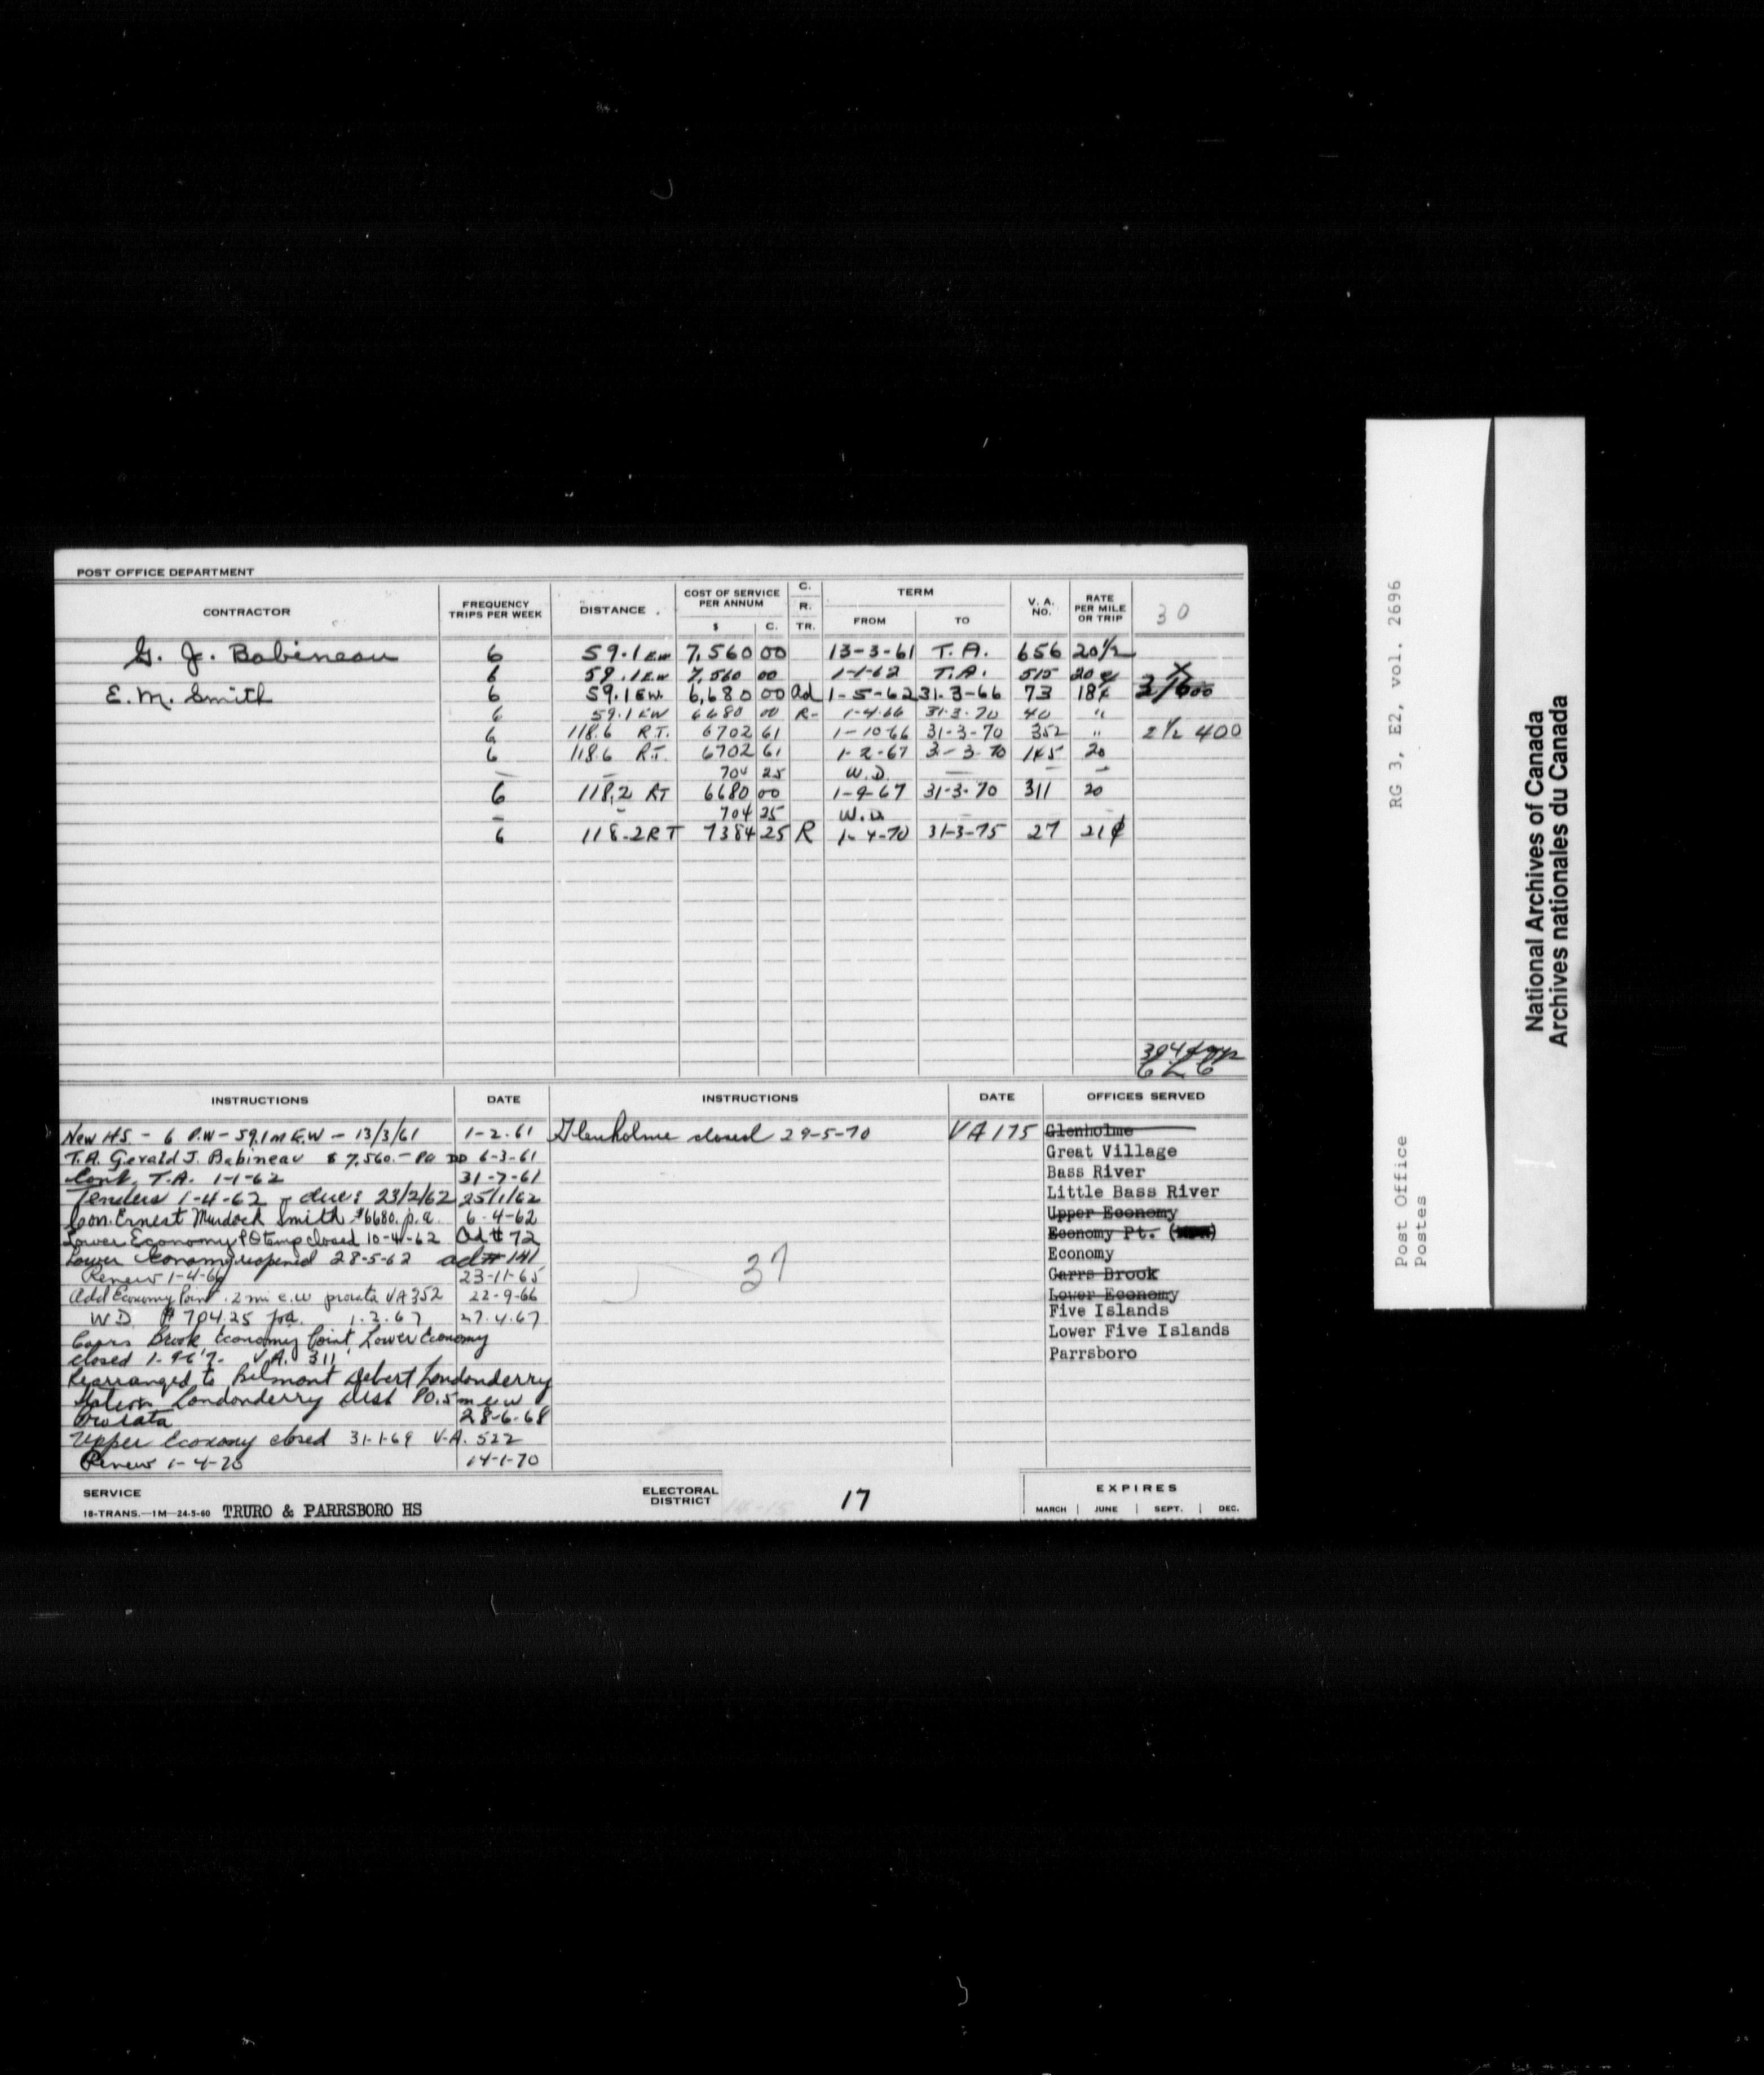 POST OFFICE DEPARTMENT
CONTRACTOR FREQUENCY TRIPS PER WEEK DISTANCE COST OF SERVICE PER ANNUM $ C. C. R. TR. TERM FROM TO V. A. NO. RATE PER MILE OR TRIP 30
G. J. Babineau 6 59.1 EW 7,560 00 13-3-61 T.A. 656 20½
6 59.1 EW 7,560 00 1-1-62 T.A. 515 20
E. M. Smith 6 59.1 EW. 6,680 00 Ad 1-5-62 31-3-66 73 18¢
6 59.1 EW 6680 00 R- 1-4-66 31-3-70 40 "
6 118.6 R.T. 6702 61 1-10-66 31-3-70 352 " 2½ 400
6 118.6 R.T. 6702 61 1-2-67 31-3-70 145 20
— — 704 25 W.D. — — —
6 118.2 RT 6680 00 1-9-67 31-3-70 311 20
— — 704 25 W.D. —
6 118.2 RT 7384 25 R 1-4-70 31-3-75 27 21¢
INSTRUCTIONS DATE INSTRUCTIONS DATE OFFICES SERVED
New H.S. - 6 P.W - 59.1 m E.W - 13/3/61 1-2-61 Glenholme closed 29-5-70 VA 175 Glenholme
T.A. Gerald J. Babineau $7,560.- PA 6-3-61 Great Village
Cont. T.A. 1-1-62 31-7-61 Bass River
Tenders 1-4-62 - due: 23/2/62 25/1/62 Little Bass River
Con. Ernest Murdock Smith - $6680. p.a. 6-4-62 Upper Economy
Lower Economy PO temp closed 10-4-62 Ad # 72 Economy Pt.
Lower Economy reopened 28-5-62 ad # 141 Economy
Renew 1-4-66 23-11-65 Carrs Brook
Add Economy Point .2 mi e.w prorata VA 352 22-9-66 Lower Economy
W.D. $704.25 p.a. 1.2.67 27.4.67 Five Islands
Carrs Brook Economy Point, Lower Economy Lower Five Islands
closed 1-9-67 - V.A. 311 Parrsboro
37
Rearranged to Belmont Debert Londonderry
Station Londonderry dist PO .5 m e w
Prorata 28-6-68
Upper Economy closed 31-1-69 V.A. 522
Renew 1-4-70 14-1-70
SERVICE
18-TRANS.—1M—24-5-60 TRURO & PARRSBORO HS
ELECTORAL DISTRICT 17
EXPIRES
MARCH | JUNE | SEPT. | DEC.
RG 3, E2, vol. 2696
Post Office
Postes
National Archives of Canada
Archives nationales du Canada